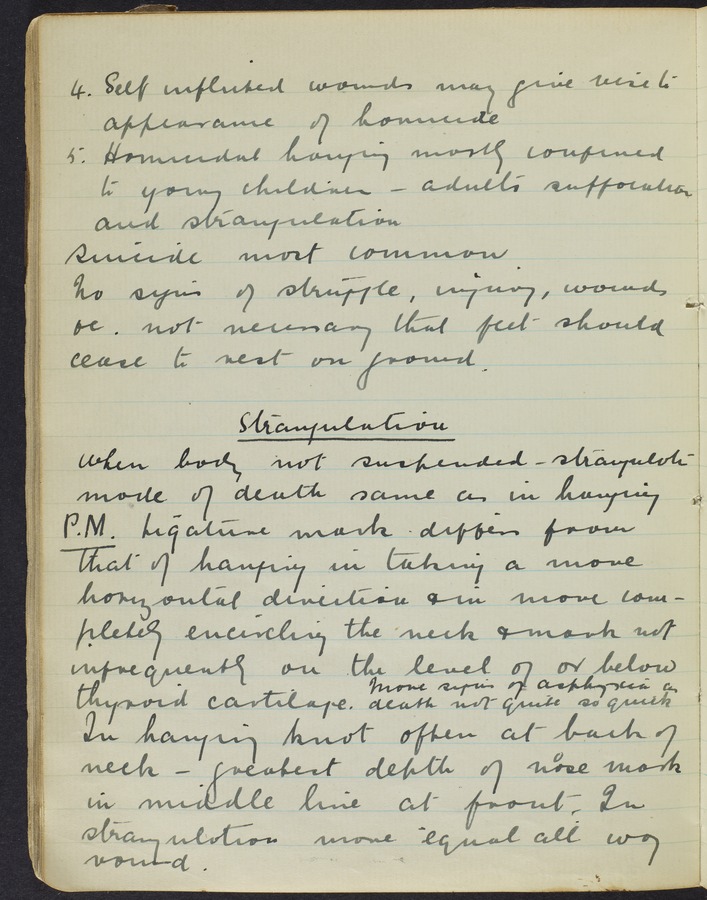 4. Self inflicted wounds may give rise to
appearance of homicide
5. Homicidal hanging mostly confined
to young children - adults suffocation
and strangulation
Suicide most common
No signs of struggle, injury, wounds
&c. not necessary that feet should
cease to rest on ground.
Strangulation
When body not suspended - strangulatn
mode of death same as in hanging
P.M. Ligature mark differs from
that of hanging in taking a more
horizontal direction & in more com-
pletely encircling the neck & mark not
infrequently on the level of or below
thyroid cartilage. More signs of asphyxia as
death not quite so quick
In hanging knot often at back of
neck - greatest depth of nose mark
in middle line at front. In
strangulation more equal all way
round.